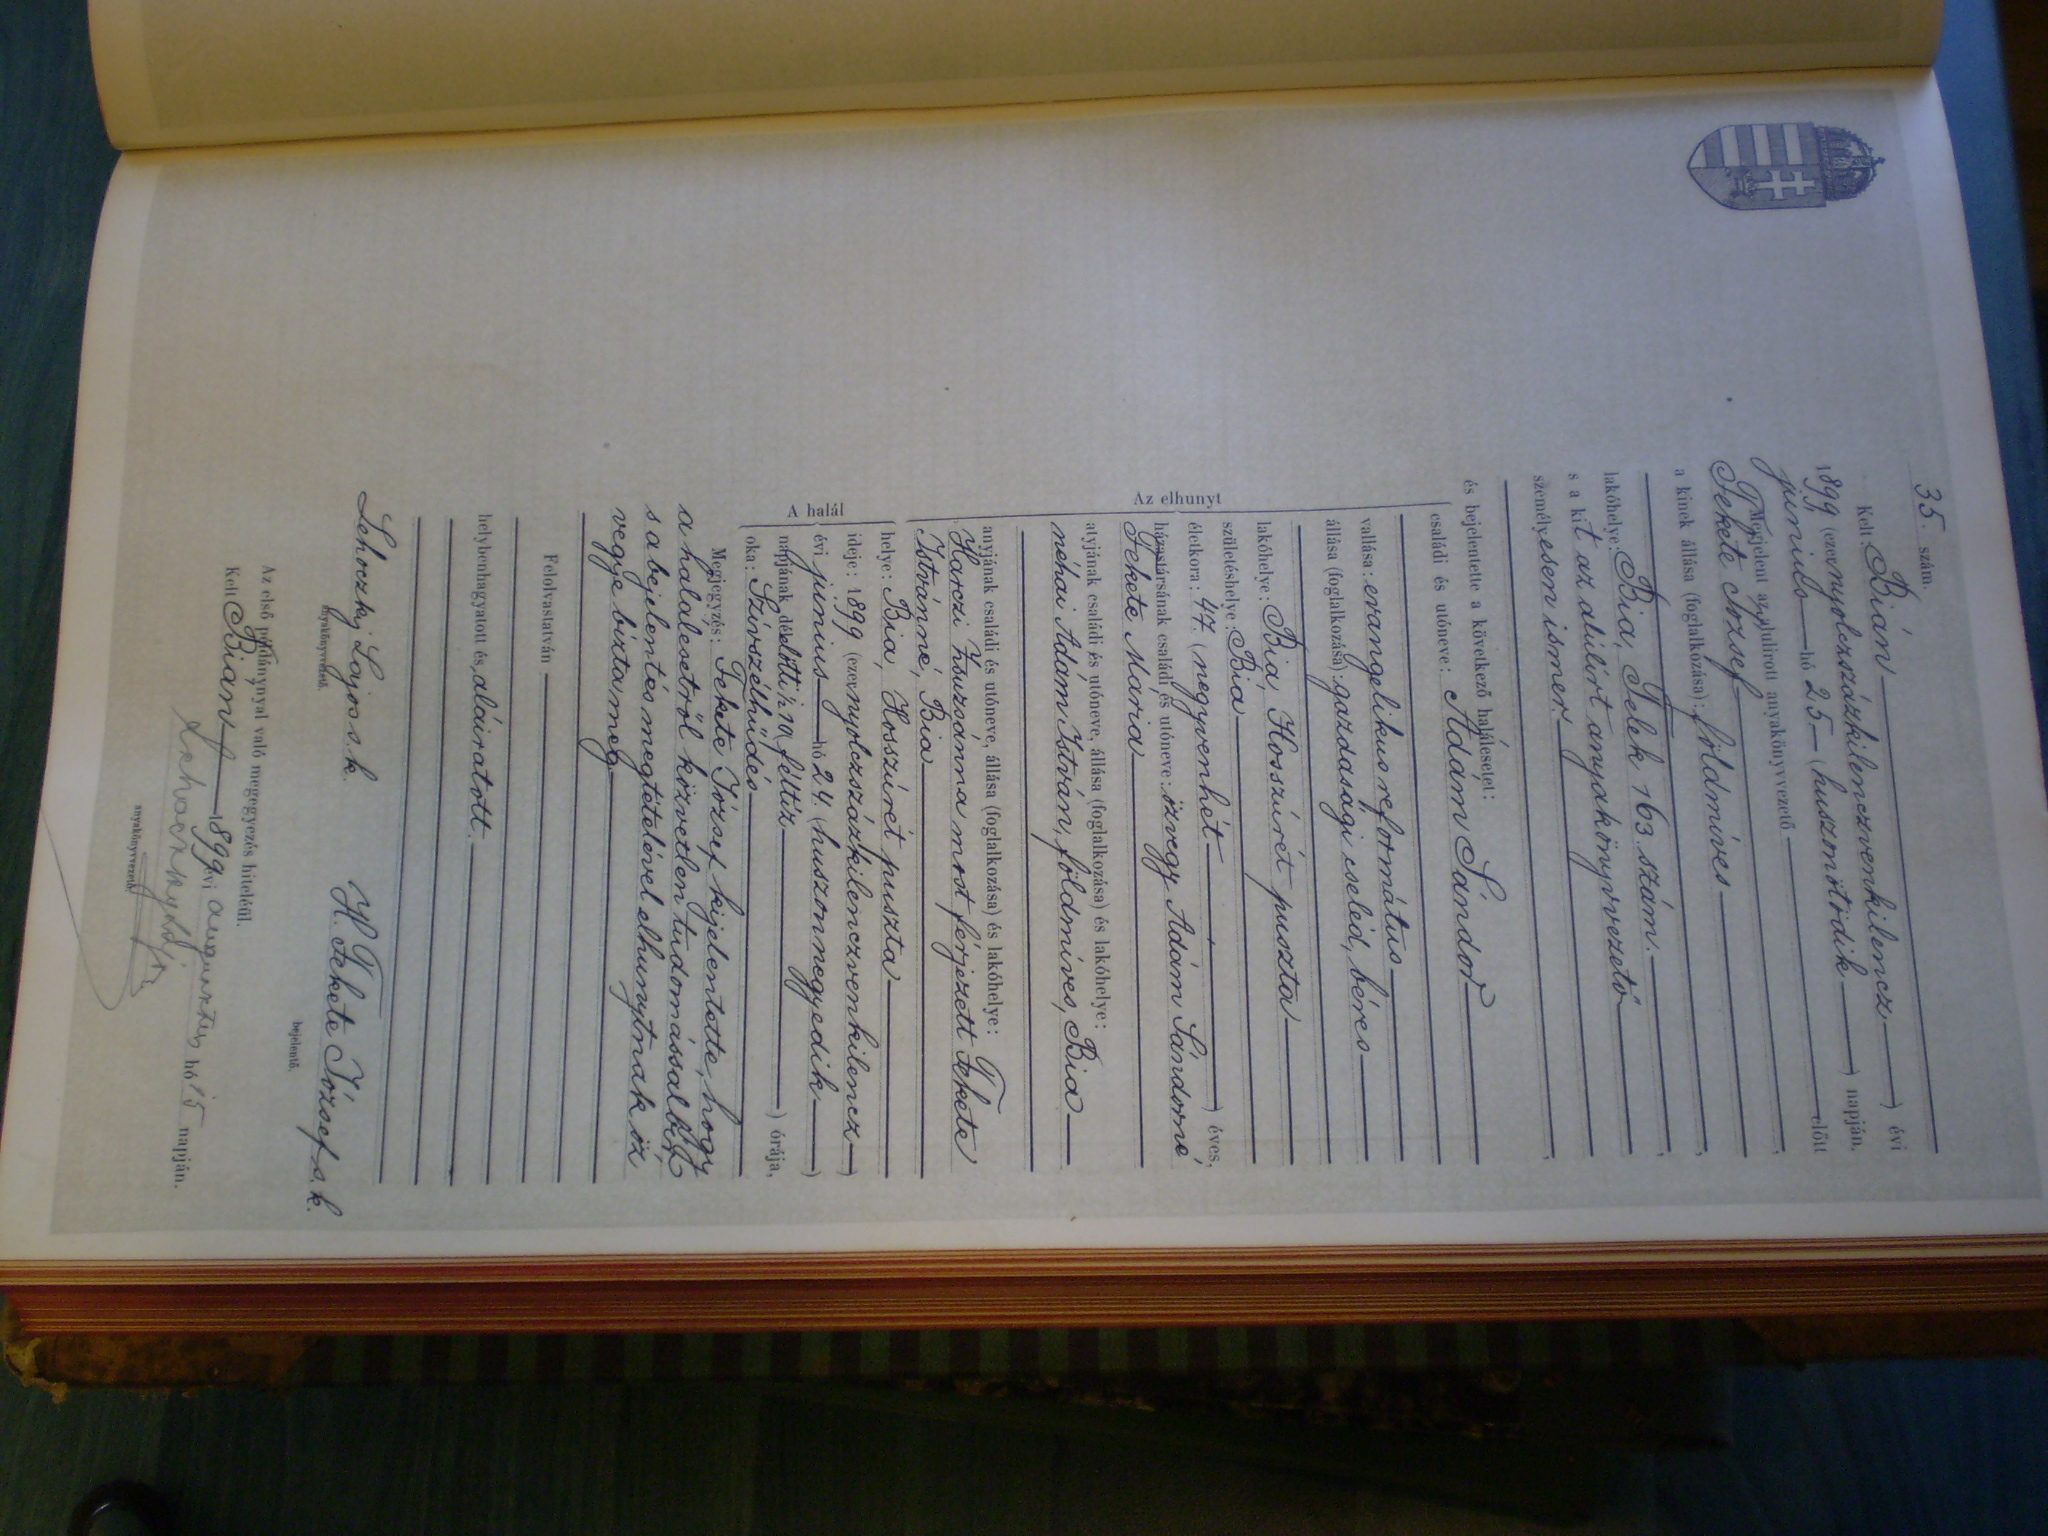 35. szám.
Kelt Bián évi
1899 (ezernyolczszázkilenczvenkilencz) napján.
június hó 25 (huszonötödik)
Megjelent az alulirott anyakönyvezető előtt
Fekete József
a kinek állása (foglalkozása): földmíves
lakóhelye: Bia, Telek 163. szám.
s a kit az alulírt anyakönyvvezető
személyesen ismer
és bejelentette a következő halálesetet:
családi és utóneve: Adám Sándor
vallása: evangelikus református
állása (foglalkozása): gazdasági cseléd, béres
lakóhelye: Bia, Hosszúrét puszta
születéshelye: Bia
életkora: 47. (megyvenhét) éves,
házastársának családi és utóneve: özvegy Adám Sándorné
Fekete Mária
atyjának családi és utóneve, állása (foglalkozása) és lakóhelye:
néhai Adám István, földmíves, Bia
anyjának családi és utóneve, állása (foglalkozása) és lakóhelye:
Harczi Zsuzsánna most férjezett Fekete
Istvánné, Bia
Az elhunyt
helye: Bia, Hosszúrét puszta
ideje: 1899 (ezernyolczszázkilenczvenkilencz)
évi június hó 24. (huszonnegyedik)
napjának délelőtti ½ 10 (féltíz) órája,
oka: Szívszélhűdés
A halál
Megjegyzés: Fekete József kijelentette, hogy
a halálesetről közvetlen tudomással bír
s a bejelentés megtételével elhunytnak öz
vegye bízta meg
Felolvastatván
helybenhagyatott és aláiratott.
Lehoczky Lajos s.k. H. Fekete József s.k.
anyakönyvvezető. bejelentő.
Az első példánynyal való megegyezés hiteléül.
Kelt Bián 1899 évi augusztus hó 15 napján.
anyakönyvvezető.